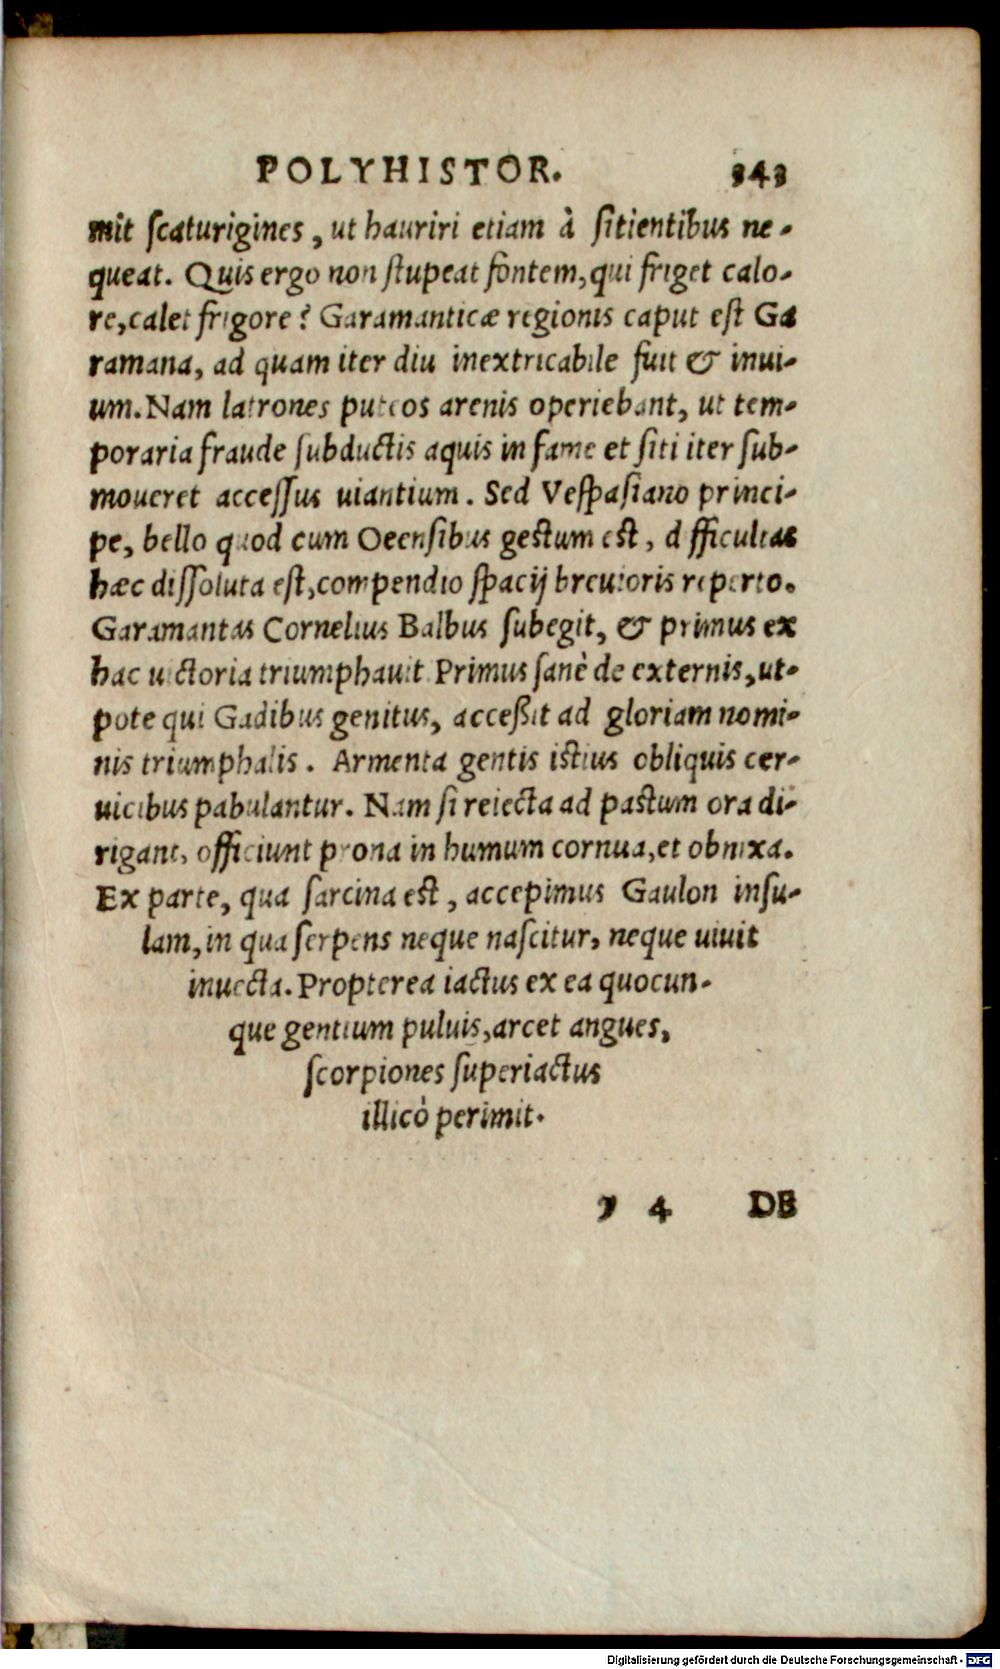 POLYHISTOR. 343
mit ſcaturigines, ut hauriri etiam à ſitientibus ne-
queat. Quis ergo non ſtupeat fontem, qui friget calo-
re, calet frigore? Garamanticæ regionis caput eſt Ga
ramana, ad quam iter diu inextricabile fuit & inui-
um. Nam latrones puteos arenis operiebant, ut tem-
poraria fraude ſubductis aquis in fame et ſiti iter ſub-
moueret acceſſus uiantium. Sed Veſpaſiano princi-
pe, bello quod cum Oeenſibus geſtum eſt, difficultas
hæc diſſoluta eſt, compendio ſpacij breuioris reperto.
Garamantas Cornelius Balbus ſubegit, & primus ex
hac uictoria triumphauit. Primus ſanè de externis, ut-
pote qui Gadibus genitus, acceßit ad gloriam nomi-
nis triumphalis. Armenta gentis iſtius obliquis cer-
uicibus pabulantur. Nam ſi reiecta ad paſtum ora di-
rigant, officiunt prona in humum cornua, et obnixa.
Ex parte, qua ſarcina eſt, accepimus Gaulon inſu-
lam, in qua ſerpens neque naſcitur, neque uiuit
inuecta. Propterea iactus ex ea quocun-
que gentium puluis, arcet angues,
ſcorpiones ſuperiactus
illicò perimit.
y 4 DE
Digitalisierung gefördert durch die Deutsche Forschungsgemeinschaft - DFG